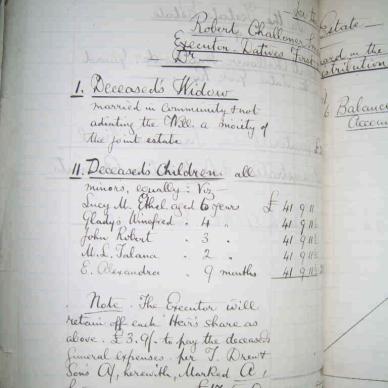 for the Estate
Robert Challoner
Executor Datives
Dr
based in the
distribution
I. Deceased's Widow
married in community & not
adiating the Will. a moiety of
the joint estate
6 Balance
Account
II. Deceased's Children: all
minors, equally: Viz—
Lucy M. Ethel aged 6 years £ 41 9 11½
Gladys Winifred " 4 " 41 9 11½
John Robert " 3 " 41 9 11½
M. L. Talana " 2 " 41 9 11½
E. Alexandra " 9 months 41 9 11½
Note. The Executor will
retain off each Heir's share as
above. £3.9/- to pay the deceased
funeral expenses. per T. Drew &
Sons A/c, herewith, Marked A